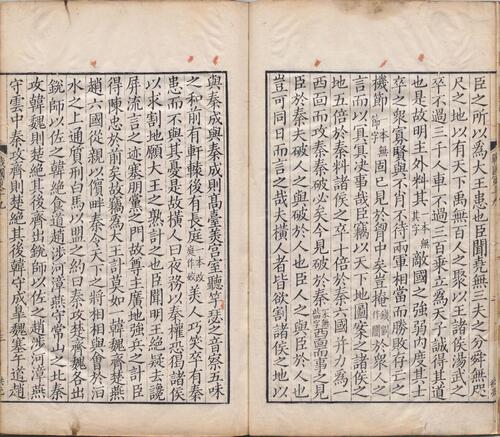 臣之所以為大王患也臣聞堯無三夫之分舜無咫
尺之地以有天下禹無百人之聚以王諸侯湯武之
卒不過三千人車不過三百乗立為天子誠得其道
也是故明主外料其本無其字敵國之強弱内度其士
卒之衆寡賢與不肖不待兩軍相當而勝敗存亡之
機節本無節字固已見於胷中矣豈掩錢劉作闇於衆人之
言而以冥冥决事哉臣竊以天下地圖案之諸侯之
地五倍於秦料諸侯之卒十倍於秦六國并力為一
西面而攻秦秦破必矣今見破於秦西面而事之見
臣於秦夫破人之與破於人也臣人之與臣於人也
豈可同日而言之哉夫横人者皆欲割諸侯之地以
與秦成與秦成則髙臺美宫室聽竽瑟之音察五味
之和前有軒轅後有長庭美人巧笑卒有秦
患而不與其憂是故横人日夜務以秦權恐猲諸侯
以求割地願大王之熟計之也臣聞明王絶疑去讒
屏流言之迹塞朋黨之門故尊主廣地強兵之計臣
得陳忠於前矣故竊為大王計莫如一韓魏齊楚燕
趙六國從親以儐畔秦令天下之將相相與會於洹
水之上通質刑白馬以盟之約曰秦攻楚齊魏各出
銳師以佐之韓絶食道趙涉河漳燕守常山之北秦
攻韓魏則楚絶其後齊出銳師以佐之趙涉河漳燕
守雲中秦攻齊則楚絶其後韓守成臯魏塞午道趙